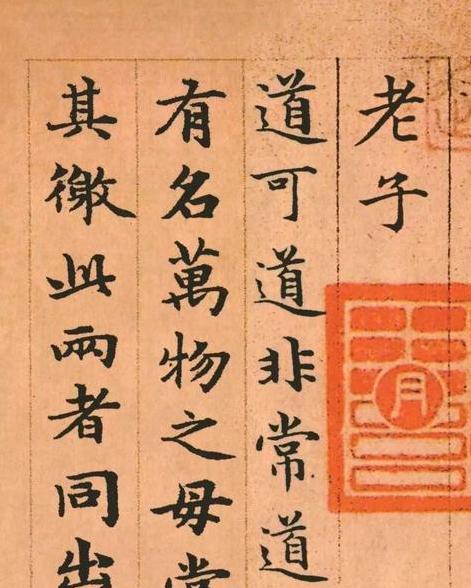 老子
道可道非常道
有名萬物之母常
其徼此兩者同出